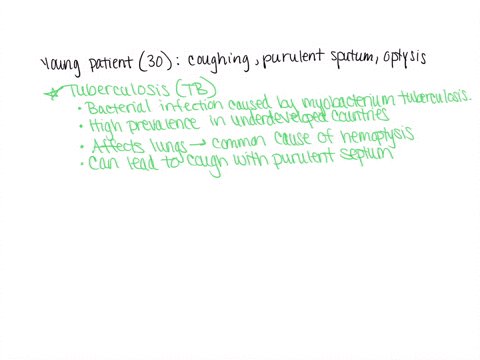 Young patient (30): coughing, purulent sputum, optysis
☆ Tuberculosis (TB)
• Bacterial infection caused by myobacterium tuberculosis.
• High prevalence in underdeveloped countries
• Affects lungs → common cause of hemoptysis
• Can lead to cough with purulent septum